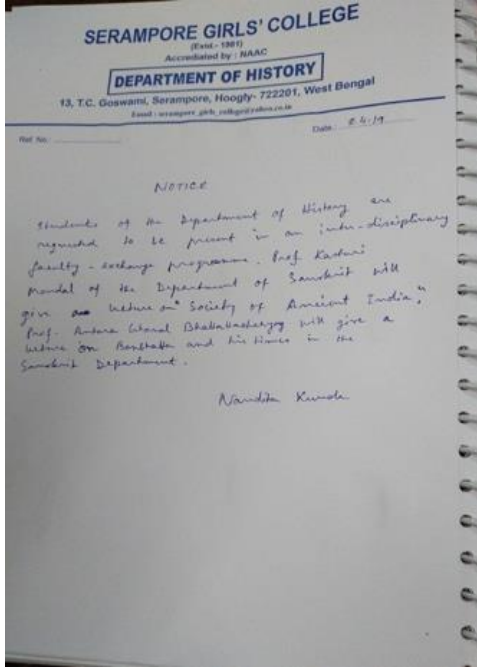 SERAMPORE GIRLS' COLLEGE
(Estd.- 1981)
Accrediated by : NAAC
DEPARTMENT OF HISTORY
13, T.C. Goswami, Serampore, Hoogly- 722201, West Bengal
Email : serampore_girls_college@yahoo.co.in
Ref. No.
Date 8.4.19
NOTICE
Students of the Department of History are
requested to be present in an inter-disciplinary
faculty-exchange programme. Prof. Kasturi
Mondal of the Department of Sanskrit will
give a lecture on "Society of Ancient India",
Prof. Antara Bhattabacherjee will give a
lecture on Banbhatta and his times in the
Sanskrit Department.
Nandita